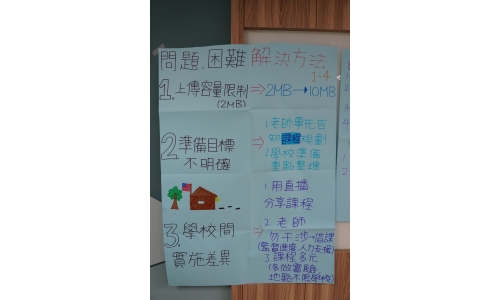 問題.困難 解決方法
1-4
1.上傳容量限制 ⇒ 2MB→10MB
(2MB)
2準備目標
不明確
⇒
1.老師事先告
知課程規劃
2.學校準備
重點整理
3.學校間
實施差異
⇒
1.用直播
分享課程
2.老師
勿干涉→借課
(監督進度.人力支援)
3.課程多元
(多做實驗
地點不限學校)